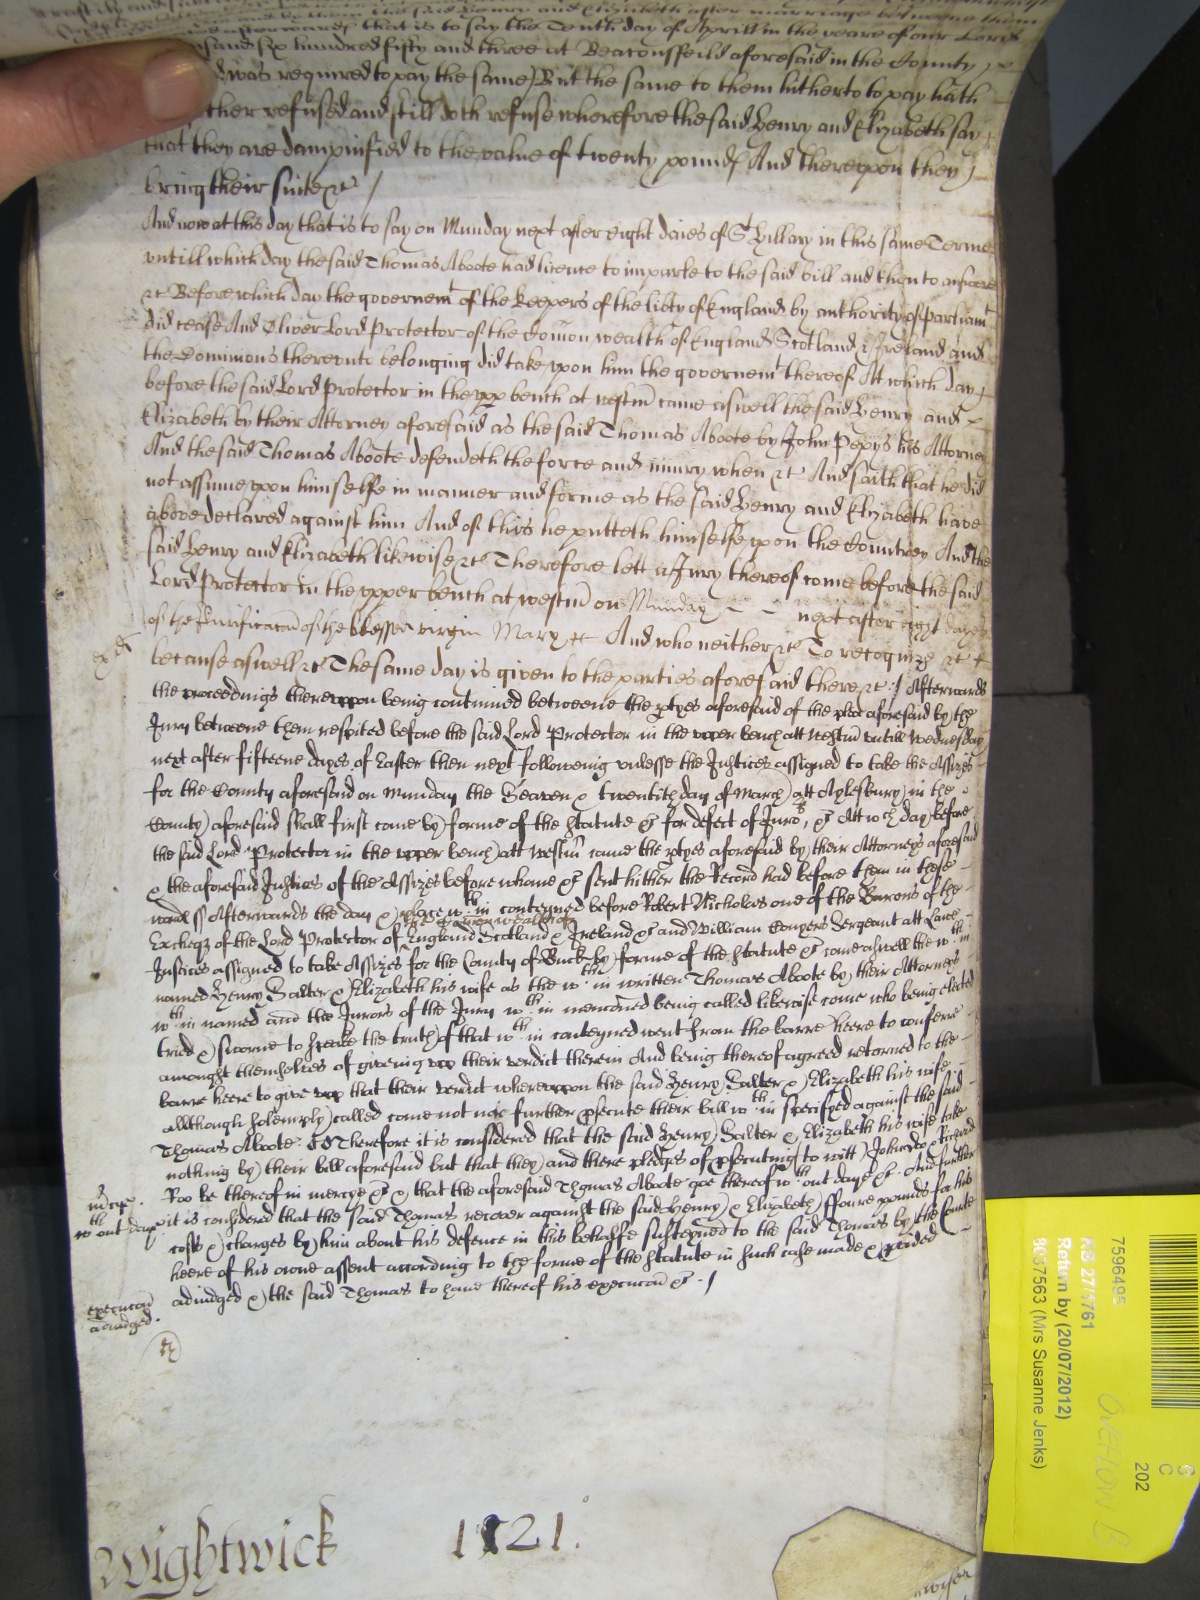 afterwards that is to say the Tenth day of Aprill in the yeare of our Lord
sand six hundred fifty and three at Beaconsfeild aforesaid in the County
was required to pay the same) But the same to them hitherto to pay hath
ther refused and still doth refuse wherefore the said Henry and Elizabeth say
that they are dampnified to the value of twenty pounds And thereupon they
bring their suite &c /
And now at this day that is to say on Munday next after eight daies of St Hillary in this same Terme
untill which day the said Thomas Aboote had licence to imparle to the said bill and then to answere
&c Before which day the governemt of the Keepers of the libty of England by authority of parliamt
did cease And Oliver Lord Protector of the Comon wealth of England Scotland & Ireland and
the Dominions thereunto belonging did take upon him the governemt thereof At which day
before the said Lord Protector in the upp bench at westm came aswell the said Henry and
Elizabeth by their Attorney aforesaid as the said Thomas Aboote by John Pepys his Attorney
And the said Thomas Aboote defendeth the force and iniury when &c And saith that he did
not assume upon himselfe in manner and forme as the said Henry and Elizabeth have
above declared against him And of this he putteth himselfe upon the Countrey And the
said Henry and Elizabeth likewise &c Therefore lett a Jury thereof come before the said
Lord Protector in the upper bench at westm on Munday next after eight dayes
of the Purificacon of the blessed virgin Mary &c And who neither &c To recognize &c
because aswell &c The same day is given to the parties aforesaid there &c / Afterwards
the proceedings thereuppon being continued betweene the ptyes aforesaid of the plea aforesaid by the
Jury betweene them respited before the said Lord Protector in the upper bench att Westm untill Wednesday
next after fifteene dayes of Easter then next followeing unlesse the Justices assigned to take the Assizes
for the County aforesaid on Munday the Seaven & twentith day of March att Aylesbury in the
County aforesaid shall first come by forme of the statute &c for defect of Juro &c Att wch day before
the said Lord Protector in the upper bench att Westm came the ptyes aforesaid by their Attorneys aforesaid
& the aforesaid Justices of the Assizes before whome &c sent hither the Record had before them in these
words ss Afterwards the day & place wth in conteyned before Robert Nicholas one of the Barons of the
the Comonwealth of
Excheqr of the Lord Protector of England Scotland & Ireland &c and William Conyers Sergeant att Lawe
Justices assigned to take Assizes for the County of Buck by forme of the statute &c come aswell the wth in
named Henry Salter & Elizabeth his wife as the wth in written Thomas Aboote by their Attorneys
wth in named and the Jurors of the Jury wth in menconed being called likewise come who being elected
tried & sworne to speake the truth of that wth in conteyned went from the barre heere to conferre
amongst themselves of giveing upp their verdict therein And being thereof agreed retorned to the
barre heere to give upp that their verdict whereuppon the said Henry Salter & Elizabeth his wife
allthough solemply called come not nor further psecute their bill wth in specifyed against the said
Thomas Aboote. Therefore it is considered that the said Henry Salter & Elizabeth his wife take
nothing by their bill aforesaid but that they and there pledges of psecuting (to witt) John Doo & Richard
Roo be thereof in mercye &c & that the aforesaid Thomas Aboote goe thereof wth out daye &c. And further
it is considered that the said Thomas recover against the said Henry & Elizabeth ffoure pounds for his
costs & charges by him about his defence in this behalfe susteyned to the said Thomas by the Courte
heere of his owne assent according to the forme of the statute in such case made & pvided
adiudged & the said Thomas to have thereof his execucon &c. /
mercye.
wth out daye
execucon
adiudged.
Wightwick
1121.
7596495
KB 27/1761
Return by (20/07/2012)
8037563 (Mrs Susanne Jenks)
202
S
C
Overflow B